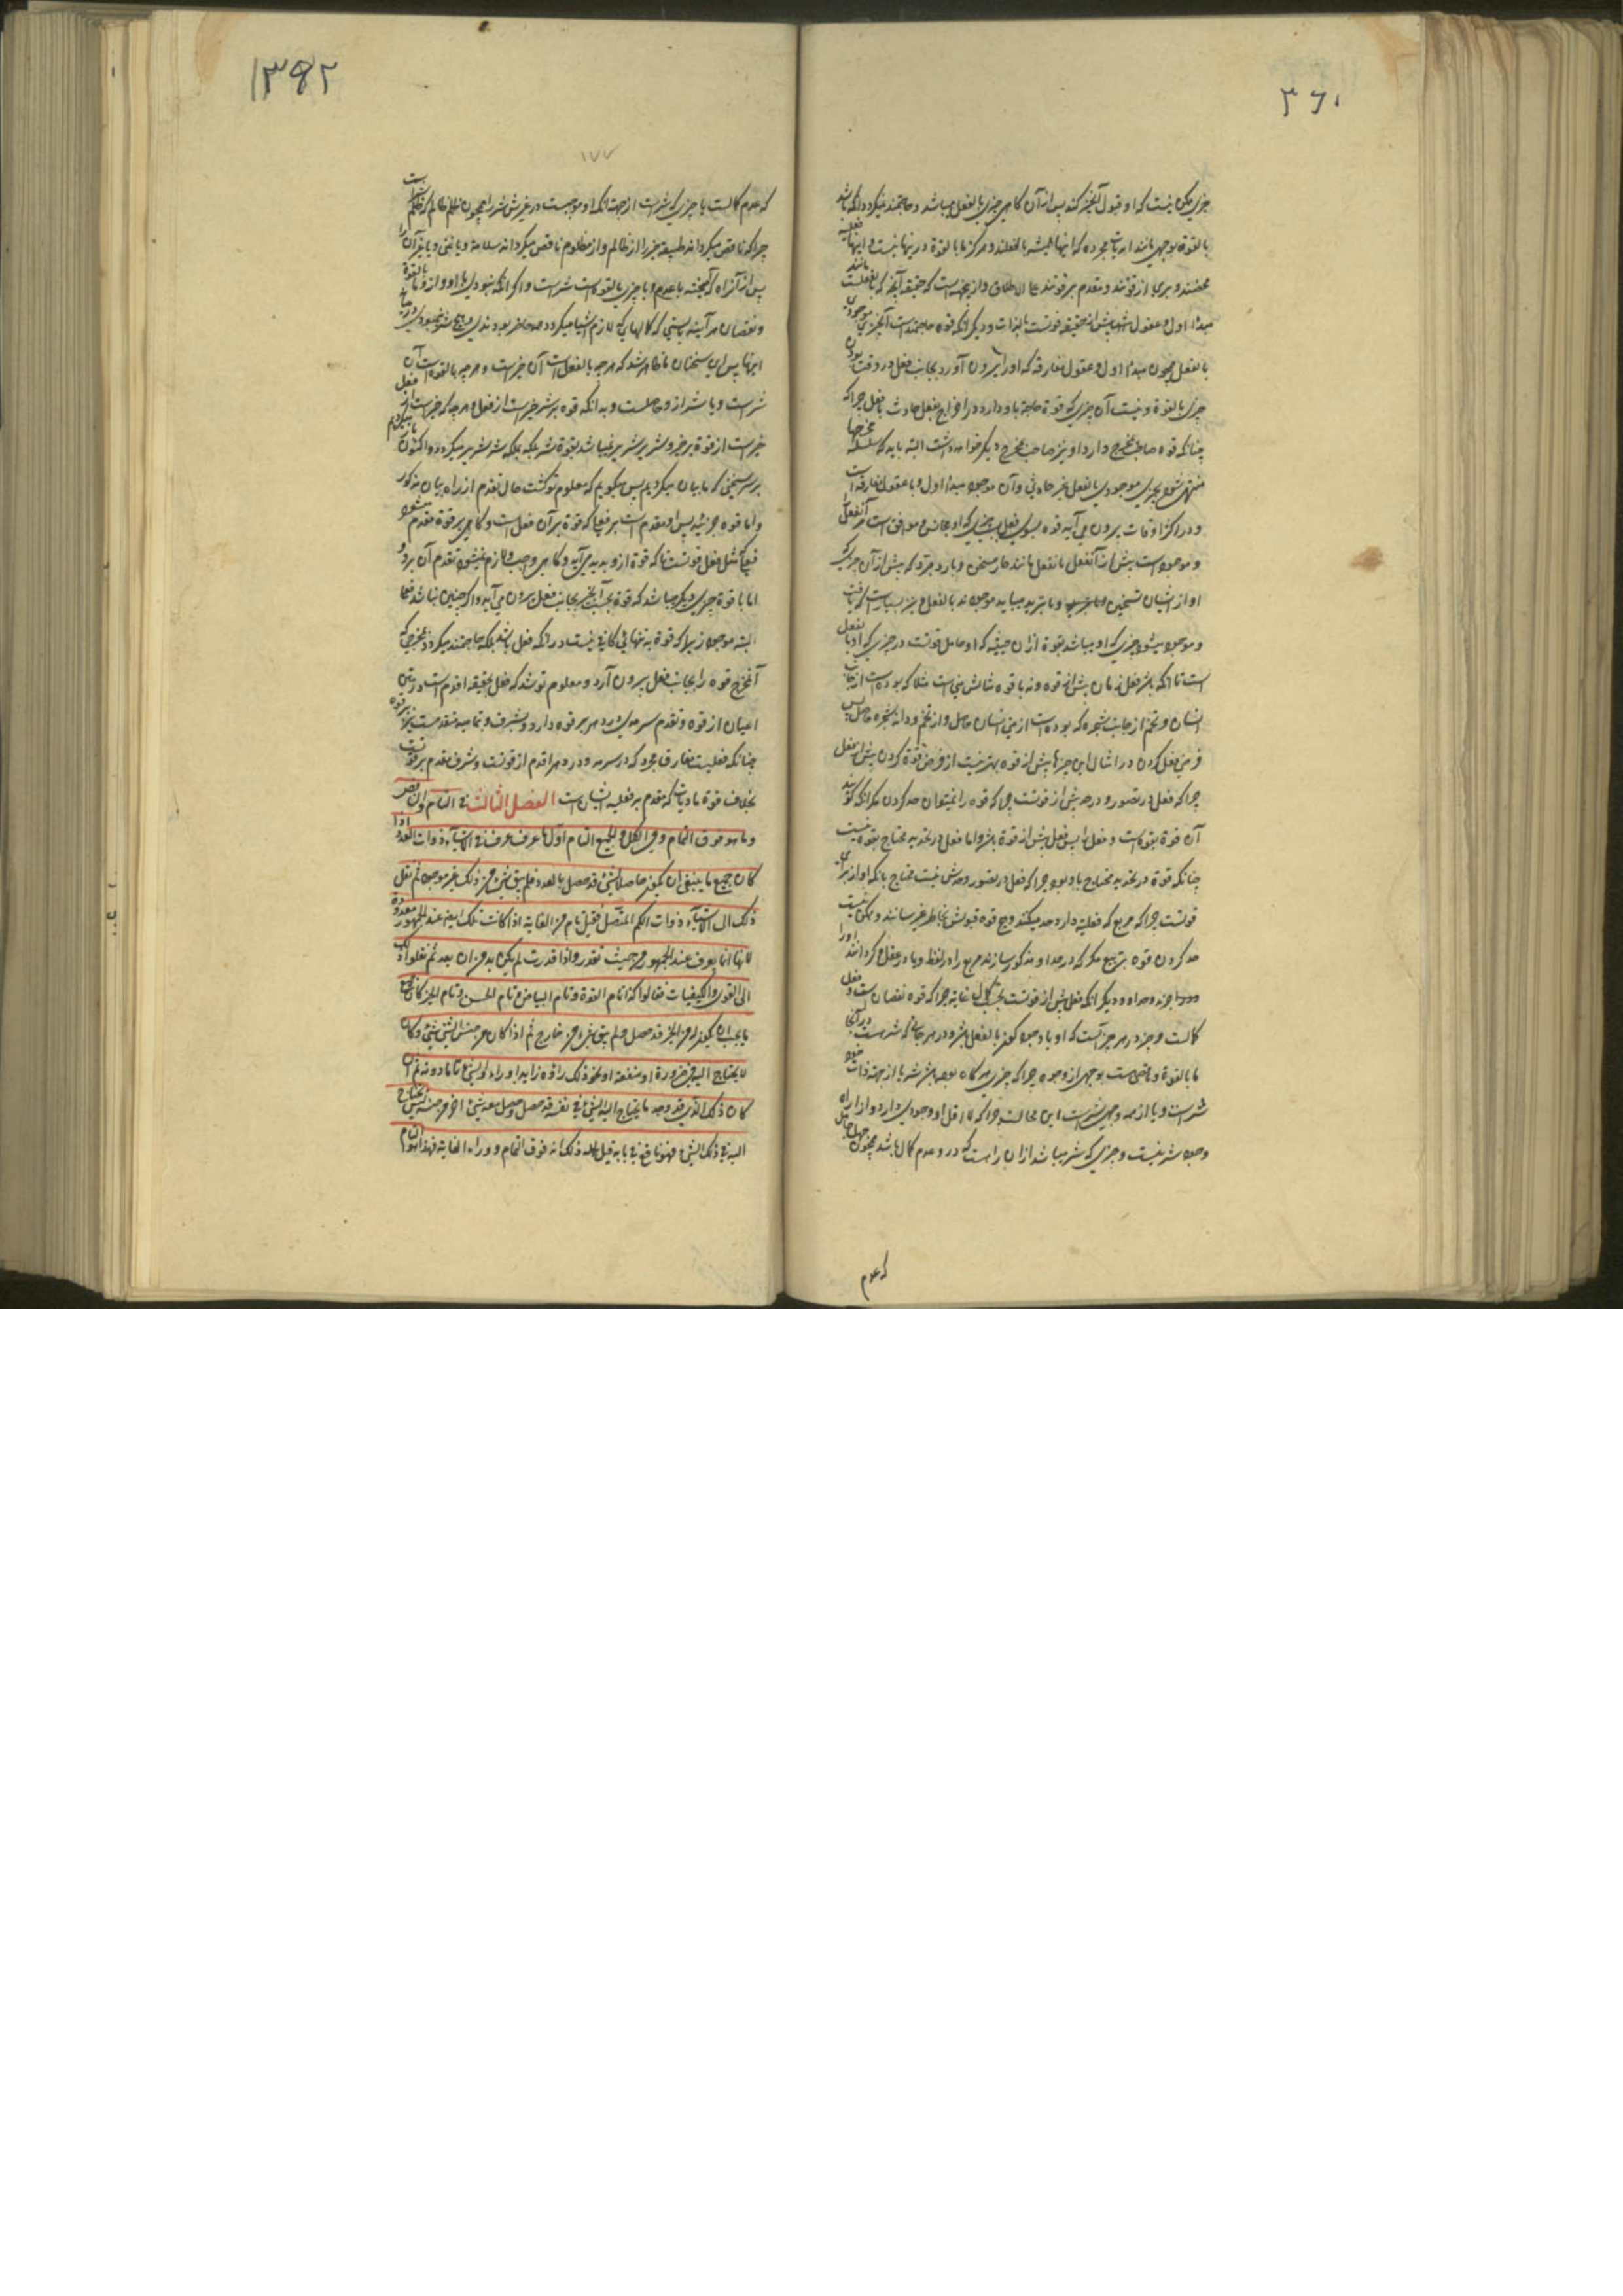 ٣٦١
چیزی ممکن نیست که او قبول آنچیز کند پس از آن گاهی چیزی بالفعل میباشد و حاجتمند نمیگردد بانکه باشد
بالقوة بوجهی مانند ابدیات مجرده که اینها همیشه بالفعلند و هرگز ما بالقوة در اینها نیست و اینها فعلیه
محضند و بری از قوتند و مقدم بر قوتند علی الاطلاق و از اینجهة است که حقیقه آنچه که بالفعلست مانند
مبدأ اول و عقول پیش از حقیقه قوتست بالذات و دیگر آنکه قوه حاجتمند است بچیزی موجودی
بالفعل همچون مبدأ اول و عقول مفارقه که اورا بیرون آورد بجانب فعل در وقت بودن
چیزی بالقوة و نیست آن چیزی که قوة حاجة باو دارد در اخراج بفعل حادث با فعل چراکه
چنانکه قوه صاحب مخرج دارد او نیز صاحب مخرج دیگر خواهد داشت البته باید که سلسله مخرجها
منتهی شود بچیزی موجودی بالفعل غیر حادثی و آن موجود مبدأ اول و یا عقول مفارقه است
و در اکثر اوقات بیرون می آید قوه بسوی فعل بسبب چیزی که او مجانس و موافق است مر آنفعل را
و موجود است پیش از آنفعل بالفعل مانند حار مسخن و بارد مبرد که پیش از آن چیزی که
او از ایشان تسخین و یا تبرید میباید موجودند بالفعل و نیز بسیار است که یافت
و موجود میشود چیزی که او میباشد بقوة از آن حیثیه که او حامل قوتست در چیزی که او بالفعل
است تا آنکه باشد فعل بزمان پیش از قوه و نه با قوه مثالش منی است مثلا که بوده است از جانب
انسان و تخم از جانب شجره که بوده است از منی انسان حاصل و از تخم و دانه شجره حاصل پس
فرض فعل کردن در امثال این چیزها پیش از قوه بهتر نیست از فرض قوة کردن پیش از فعل
چراکه فعل در تصور و در حد پیش از قوتست چراکه قوه را نمیتوان حد کردن مگر آنکه گویند
آن قوة بفعلست و فعل را پس فعل پیش از قوة باشد و اما فعل در تحدید محتاج بقوه نیست
چنانکه قوة در تحدید محتاج باو بود چراکه فعل در تصور و حدش نیست محتاج بانکه او از برای
قوتست چراکه مربع که فعلیه دارد حد میکند و هیچ قوه قبولش بخاطر نمیرسانند و ممکن نیست
حد کردن قوه تربیع مگر که در حد او مذکور سازند مربع را در لفظ و یا در عقل و گردانند اورا
جزء حد او و دیگر آنکه فعل پیش از قوتست بحسب کمال و غایة چراکه قوه نقصان است و فعل
کمالست و خیر در هر چیز آنست که او با وجود کون بالفعل باشد و در هر جائی که شر هست در آنجا
ما بالقوة و ناقص است بوجهی از وجوه چراکه چیزی هرگاه بوده باشد شر یا از جهة ذات خود
شر است و یا از همه وجهی شر است این محالست چراکه لا اقل او وجودی دارد و از راه
وجود شر نیست و چیزی که شر میباشد از آن راه است که درو عدم کمال باشد همچون جهل جاهل
که عدم
١٣٩٢
١٧٧
که عدم کمالست یا چیزی که شر است از جهة آنکه او موجبست در غیرش شر را همچون ظلم ظالم که ظلم شر است
چراکه ناقص میگرداند طبیعة خیر را از ظالم و از مظلوم ناقص میگرداند سلامة و یا غنی و یا غیر آن را
پس از آنراه که آمیخته با عدم و یا چیزی بالقوه است شر است و اگر آنکه نبودی با او و از و ما بالقوة
و نقصان هر آینه بایستی که کمالهایی که لازم اشیا میگردد همه حاضر بودندی و هیچ شر نبودی در هیچ
اینها پس ازین سخنان ما ظاهر شد که هر چه بالفعل است آن خیر است و هر چه بالقوه است آن
شر است و یا شر از و حاصلست و بدانکه قوه بر شر خیر است از فعل و هر چه که خیر است فعل او
خیر است از قوة بر خیر و شریر شریر نمیباشد بقوة شر بلکه بملکه شر شریر میگردد و اکنون باز میگردیم
بر سر سخنی که ما بیان میکردیم پس میگوییم که معلوم تو گشت حال تقدم از راه بیان مذکور
و اما قوه جزئیه پس او مقدم است بر فعلی که قوة بر آن فعل است و گاهی بر قوة مقدم میشود
فعلی که مثل فعل قوتست تا که قوة ازو پدید می آید و گاهی واجب و لازم نمیشود تقدم آن برو
اما با قوة چیزی دیگر میباشد که قوة بسبب آنچیز بجانب فعل بیرون می آید و اگر چنین نباشد فعلی
البته موجود زیرا که قوة بتنهائی کافی نیست در آنکه فعل باشد بلکه حاجتمند میگردد بمخرجی که
آنمخرج قوه را بجانب فعل بیرون آرد و معلوم تو شد که فعل بحقیقه اقدم است در متن
اعیان از قوه و تقدم سرمدی و دهری بر قوه دارد و بشرف و تمامیه متقدمست نیز بر قوه
چنانکه فعلیت مفارق مجرد که در سرمد و در دهر اقدم از قوتست و شرف تقدم بر قوتست
بخلاف قوة مادیات که مقدم بر فعلیه ایشان است الفصل الثالث فی التام والناقص
وما هو فوق التمام وفی الکل والجمیع التام اول ما عرف عرف فی الاشیاء ذوات العدد اذا
کان جمیع ما ینبغی ان یکون حاصلا للشئ قد حصل بالعدد فلم یبق شئ من ذلک غیر موجود ثم نقل
ذلک الی الاشیاء ذوات الکم المتصل فقیل تام فی القامة اذا کانت تلک ایضا عند الجمهور معدودة
لانها انما یعرف عند الجمهور من حیث تقدر واذا قدرت لم یکن بد من ان یعد ثم نقلوا ذلک
الی القوی والکیفیات فقالوا کذا تام القوة وتام البیاض وتام الحسن وتام الخیر کان جمیع
ما یجب ان یکون له من الخیر قد حصل ولم یبق شئ من خارج ثم اذا کان من جنس الشئ شئ وکان
لا یحتاج الیه فی ضرورة او منفعة او نحو ذلک راوه زایدا وراوا الشئ تاما دونه ثم ان
کان ذلک الذی قد وجد ما یحتاج الیه الشئ فی نفسه قد حصل وحصل معه شئ اخر من جنسه لیس یحتاج
الیه فی ذلک الشئ فهو نافع فی بابه قیل لکله ذلک انه فوق التمام ووراء الغایة فهذا هو التام